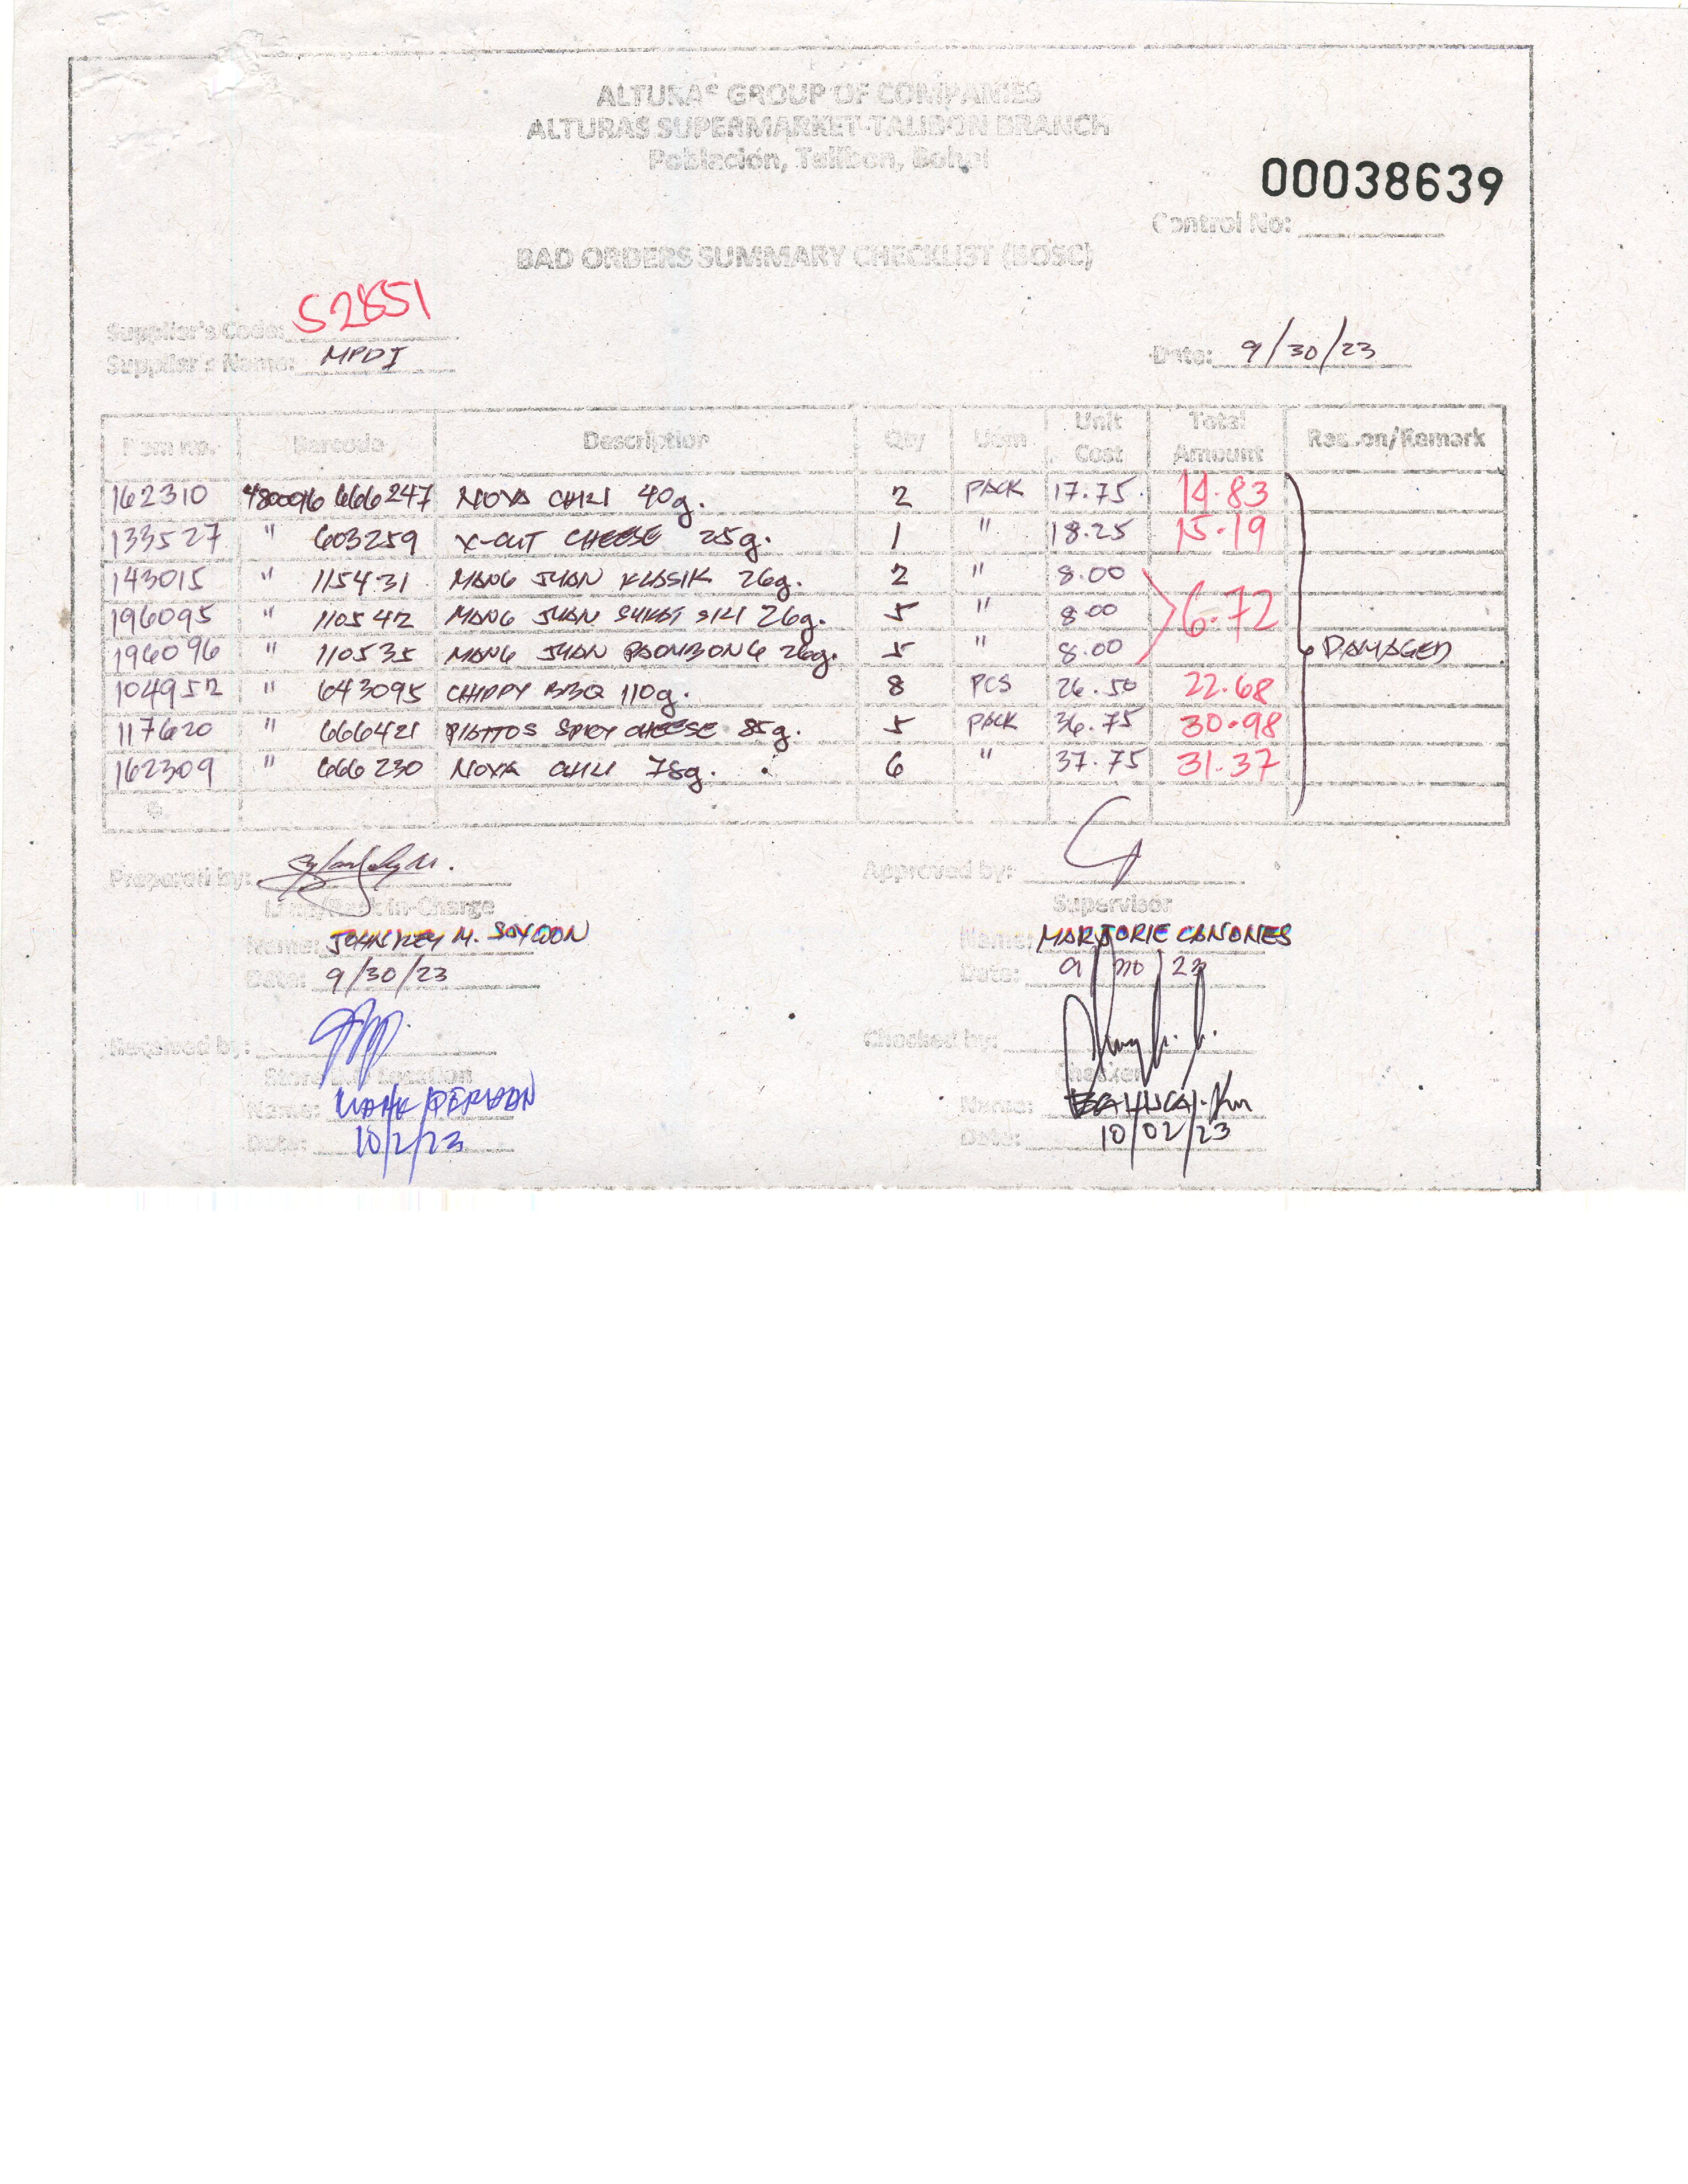 ALTURAS GROUP OF COMPANIES
ALTURAS SUPERMARKET-TALIBON BRANCH
Poblacion, Talibon, Bohol
00038639
Control No:
BAD ORDERS SUMMARY CHECKLIST (BOSC)
Supplier's Code: S2851
Supplier's Name: MPDI
Date: 9/30/23
Item no. Barcode Description Qty Uom Unit Cost Total Amount Reason/Remark
162310 4800016 666247 NOVA CHILI 40g. 2 PACK 17.75 14.83
133527 " 603259 X-CUT CHEESE 25g. 1 " 18.25 15.19
143015 " 115431 MANG JUAN KLASIK 26g. 2 " 8.00
196095 " 110542 MANG JUAN SUKAT SILI 26g. 5 " 8.00 6.72
196096 " 110535 MANG JUAN PAOMBONG 26g. 5 " 8.00 DAMAGED
104952 " 643095 CHIPPY BBQ 110g. 8 PCS 26.50 22.68
117620 " 666421 PIATTOS SPICY CHEESE 85g. 5 PACK 36.75 30.98
162309 " 666230 NOVA CHILI 78g. 6 " 37.75 31.37
Prepared by:
Approved by:
In-Charge
Supervisor
Name: JOHNREY M. SOYCON
Name: MARJORIE CANONES
Date: 9/30/23
Date: 9/30/23
Received by:
Checked by:
Location
Checker
Name: MARK
Name:
Date: 10/2/23
Date: 10/02/23